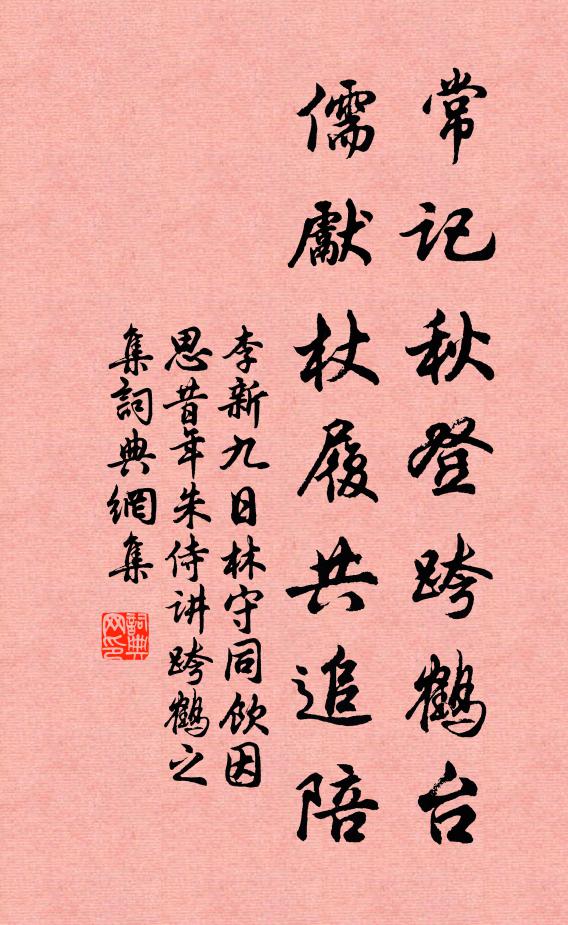 常记秋登跨鹤台
儒獻杖履共追陪
李新九日林守同饮因
思昔年朱侍讲跨鹤之
集詞典網集
詞典网印